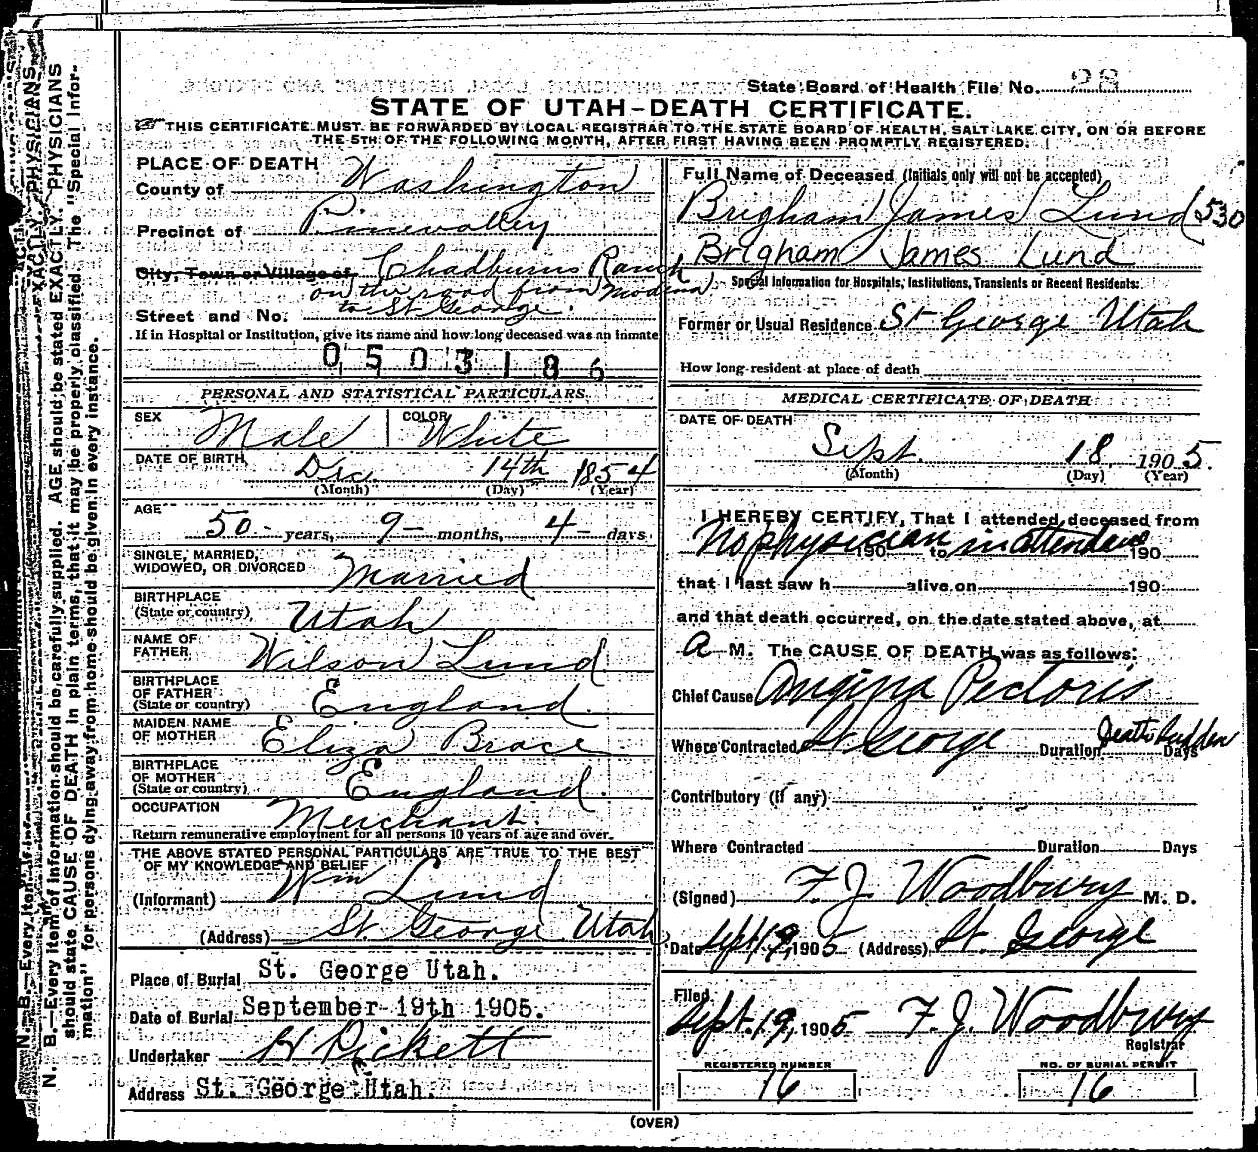 State Board of Health File No. 28
STATE OF UTAH-DEATH CERTIFICATE.
THIS CERTIFICATE MUST BE FORWARDED BY LOCAL REGISTRAR TO THE STATE BOARD OF HEALTH, SALT LAKE CITY, ON OR BEFORE
THE 5TH OF THE FOLLOWING MONTH, AFTER FIRST HAVING BEEN PROMPTLY REGISTERED.
PLACE OF DEATH
County of Washington
Precinct of Pinevalley
City, Town or Village of Chadburns Ranch
on the road from Modena
Street and No. to St George.
If in Hospital or Institution, give its name and how long deceased was an inmate
0503186
PERSONAL AND STATISTICAL PARTICULARS.
SEX Male COLOR White
DATE OF BIRTH Dec. 14th 1854
(Month) (Day) (Year)
AGE
50 - years, 9 - months, 4 - days
SINGLE, MARRIED,
WIDOWED, OR DIVORCED Married
BIRTHPLACE
(State or country) Utah
NAME OF
FATHER Wilson Lund
BIRTHPLACE
OF FATHER
(State or country) England.
MAIDEN NAME
OF MOTHER Eliza Brace
BIRTHPLACE
OF MOTHER
(State or country) England.
OCCUPATION Merchant.
Return remunerative employment for all persons 10 years of age and over.
THE ABOVE STATED PERSONAL PARTICULARS ARE TRUE TO THE BEST
OF MY KNOWLEDGE AND BELIEF
(Informant) Wm Lund
(Address) St. George Utah
Place of Burial St. George Utah.
Date of Burial September 19th 1905.
Undertaker H Pickett
Address St. George Utah.
Full Name of Deceased (Initials only will not be accepted)
Brigham James Lund (530
Brigham James Lund
Special Information for Hospitals, Institutions, Transients or Recent Residents:
Former or Usual Residence St George Utah
How long resident at place of death
MEDICAL CERTIFICATE OF DEATH
DATE OF DEATH
Sept. 18 1905.
(Month) (Day) (Year)
I HEREBY CERTIFY, That I attended deceased from
No physician 190 to in attendance 190
that I last saw h alive on 190
and that death occurred, on the date stated above, at
a M. The CAUSE OF DEATH was as follows:
Chief Cause Angina Pectoris
Where Contracted St George Duration Death Sudden Days
Contributory (if any)
Where Contracted Duration Days
(Signed) F. J Woodbury M. D.
Date Sept 19, 1905 (Address) St. George
Filed
Sept. 19, 1905 F. J. Woodbury
Registrar
REGISTERED NUMBER
16
NO. OF BURIAL PERMIT
16
(OVER)
N. B.—Every item of information should be carefully supplied. AGE should be stated EXACTLY. PHYSICIANS
should state CAUSE OF DEATH in plain terms, that it may be properly classified. The "Special Infor-
mation" for persons dying away from home should be given in every instance.